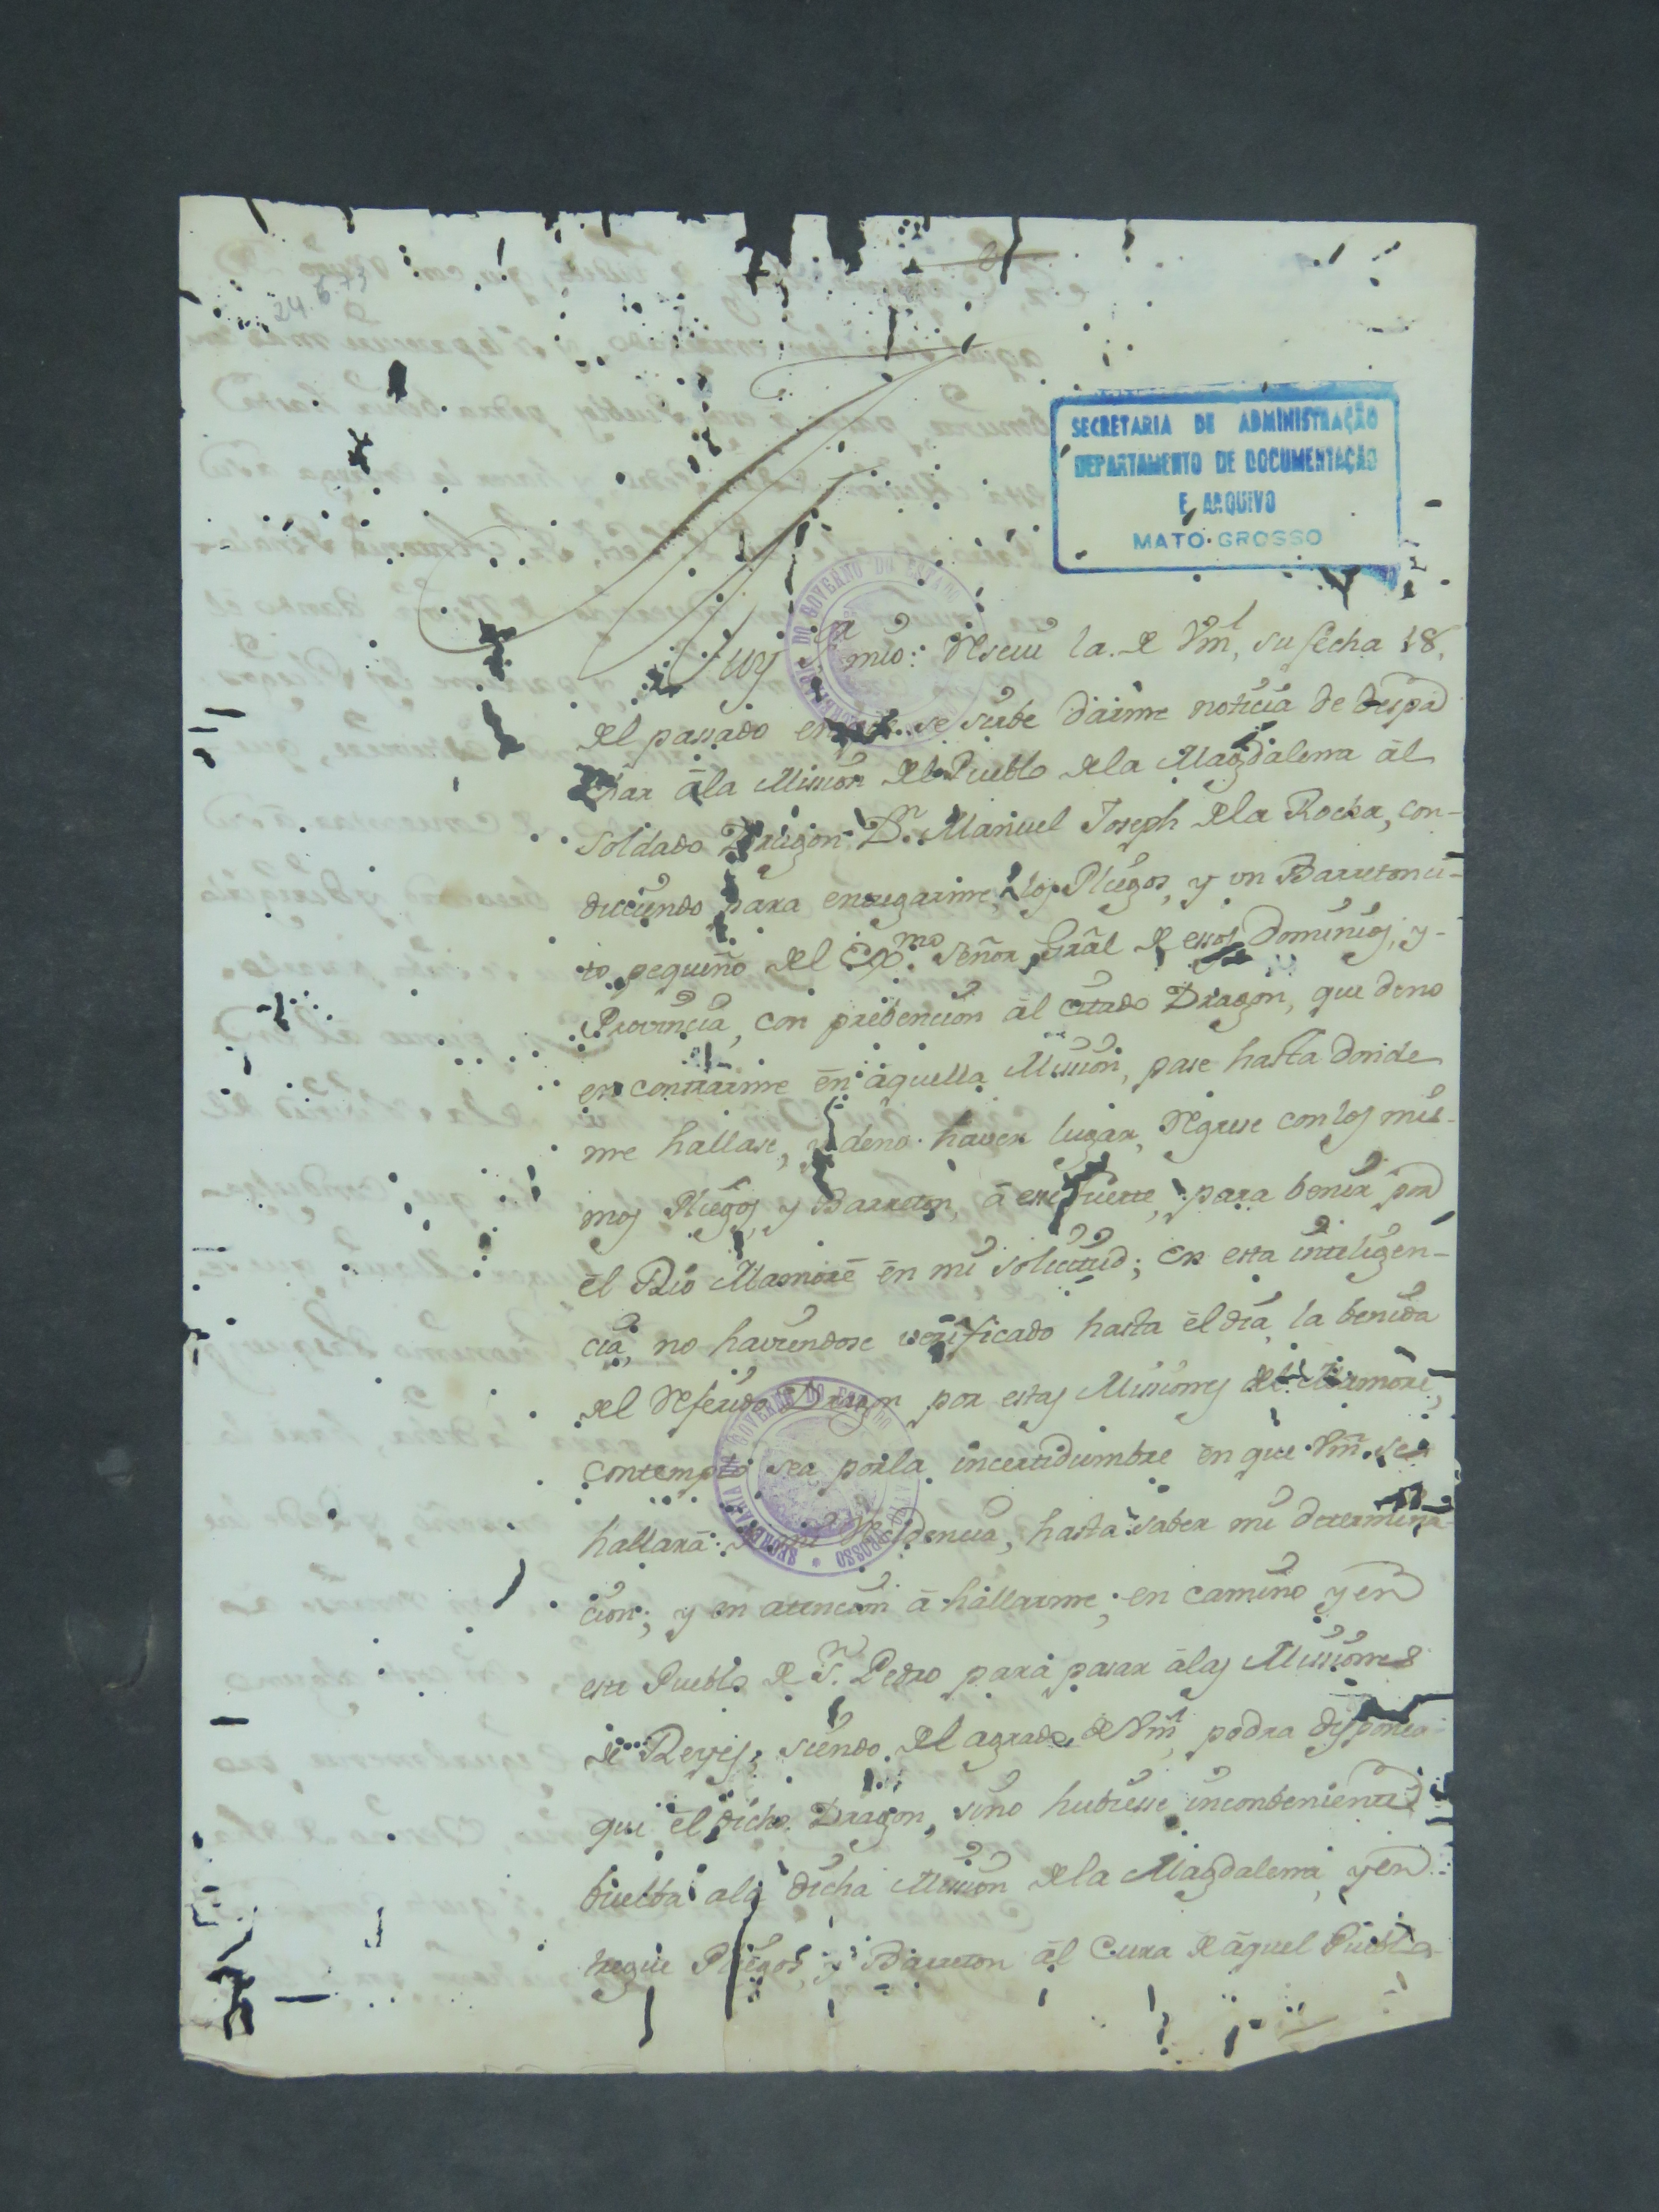 24.6.73
SECRETARIA DE ADMINISTRAÇÃO
DEPARTAMENTO DE DOCUMENTAÇÃO
E ARQUIVO
MATO GROSSO
Muy Sr mio: Reseui la de Vm, su fecha 18,
del passado en se sirbe darme noticia de despa
char àla Mission del Pueblo dela Magdalena àl
soldado Dragon Dn. Manuel Joseph dela Rocha, con-
duciendo para entregarme, los Pliegos, y un Barretonci-
to pequeño del Exmo. Señor Grâl de essos Dominios, y-
Provincia, con prebencion àl citado Dragon, que deno
encontrarme ên àquella Mission, pase hasta donde
me hallase, y deno haver lugar, Regrese con los mis-
mos Pliegos, y Barreton, à esse Fuerte, para benir por
èl Rio Mamorè ên mi solicitud; En esta intelixen-
cia, no haviendose verificado hasta èl dia, la benida
del Referido Dragon por estas Missiones del Mamorè,
contemplo sea porla incertidumbre ên que Vm. se
hallarà de mi Residencia, hasta saber mi determina-
cion; y en atencion à hallarme, en camino y en
este Pueblo de Sn. Pedro para pasar àlas Missiones
de Reyes, siendo del agrado de Vm, podra disponer
que èl dicho Dragon, sino hubiesse inconbeniente
buelba ala dicha Mission dela Magdalena, y en
tregue Pliegos, y Barreton àl Cura de àquel Pueblo
SECRETARIA DO GOVERNO DO ESTADO
SECRETARIA DO GOVERNO DO ESTADO DE MATTO GROSSO